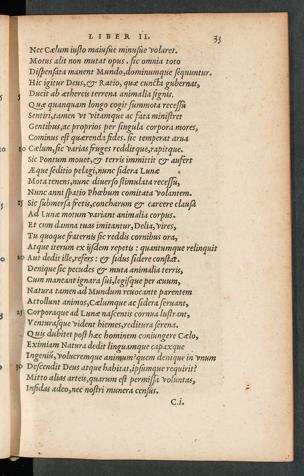 LIBER II. 33
Nec Cælum iusto maiusue minusue volaret.
Motus alit non mutat opus. sic omnia toto
Dispensata manent Mundo, dominumque sequuntur.
Hic igitur Deus, & Ratio, quæ cuncta gubernat,
Ducit ab æthereis terrena animalia signis.
Quæ quanquam longo cogit summota recessu
Sentiri, tamen ut vitamque ac fata ministret
Gentibus, ac proprios per singula corpora mores,
Cominus est quærenda fides. sic temperat arua
Cælum, sic varias fruges redditque, rapitque.
Sic Pontum mouet, & terris immittit & aufert
Æque seditio pelagi, nunc sidera Lunæ
Mota tenens, nunc diuerso stimulata recessu,
Nunc anni spatio Phœbum comitata volantem.
25 Sic submersa fretis, concharum & carcere clausa
Ad Lunæ motum variant animalia corpus.
Et cum damna tuas imitantur, Delia, vires,
Tu quoque fraternis sic reddis cornibus ora,
Atque iterum ex iisdem repetis: quantumque relinquit
20 Aut dedit ille, refers: & sidus sidere constat.
Denique sic pecudes & muta animalia terris,
Cum maneant ignara sui, legisque per æuum,
Natura tamen ad Mundum reuocante parentem
Attollunt animos, Cælumque ac sidera seruant,
25 Corporaque ad Lunæ nascentis cornua lustrant,
Venturasque vident hiemes, reditura serena.
Quis dubitet post hæc hominem coniungere Cælo,
Eximiam Natura dedit linguamque capaxque
Ingenii, volucremque animum? quem denique in vnum
30 Descendit Deus atque habitat, ipsumque requirit?
Mitto alias arteis, quarum est permissa voluntas,
Infidas adeo, nec nostri munera census.
C.i.